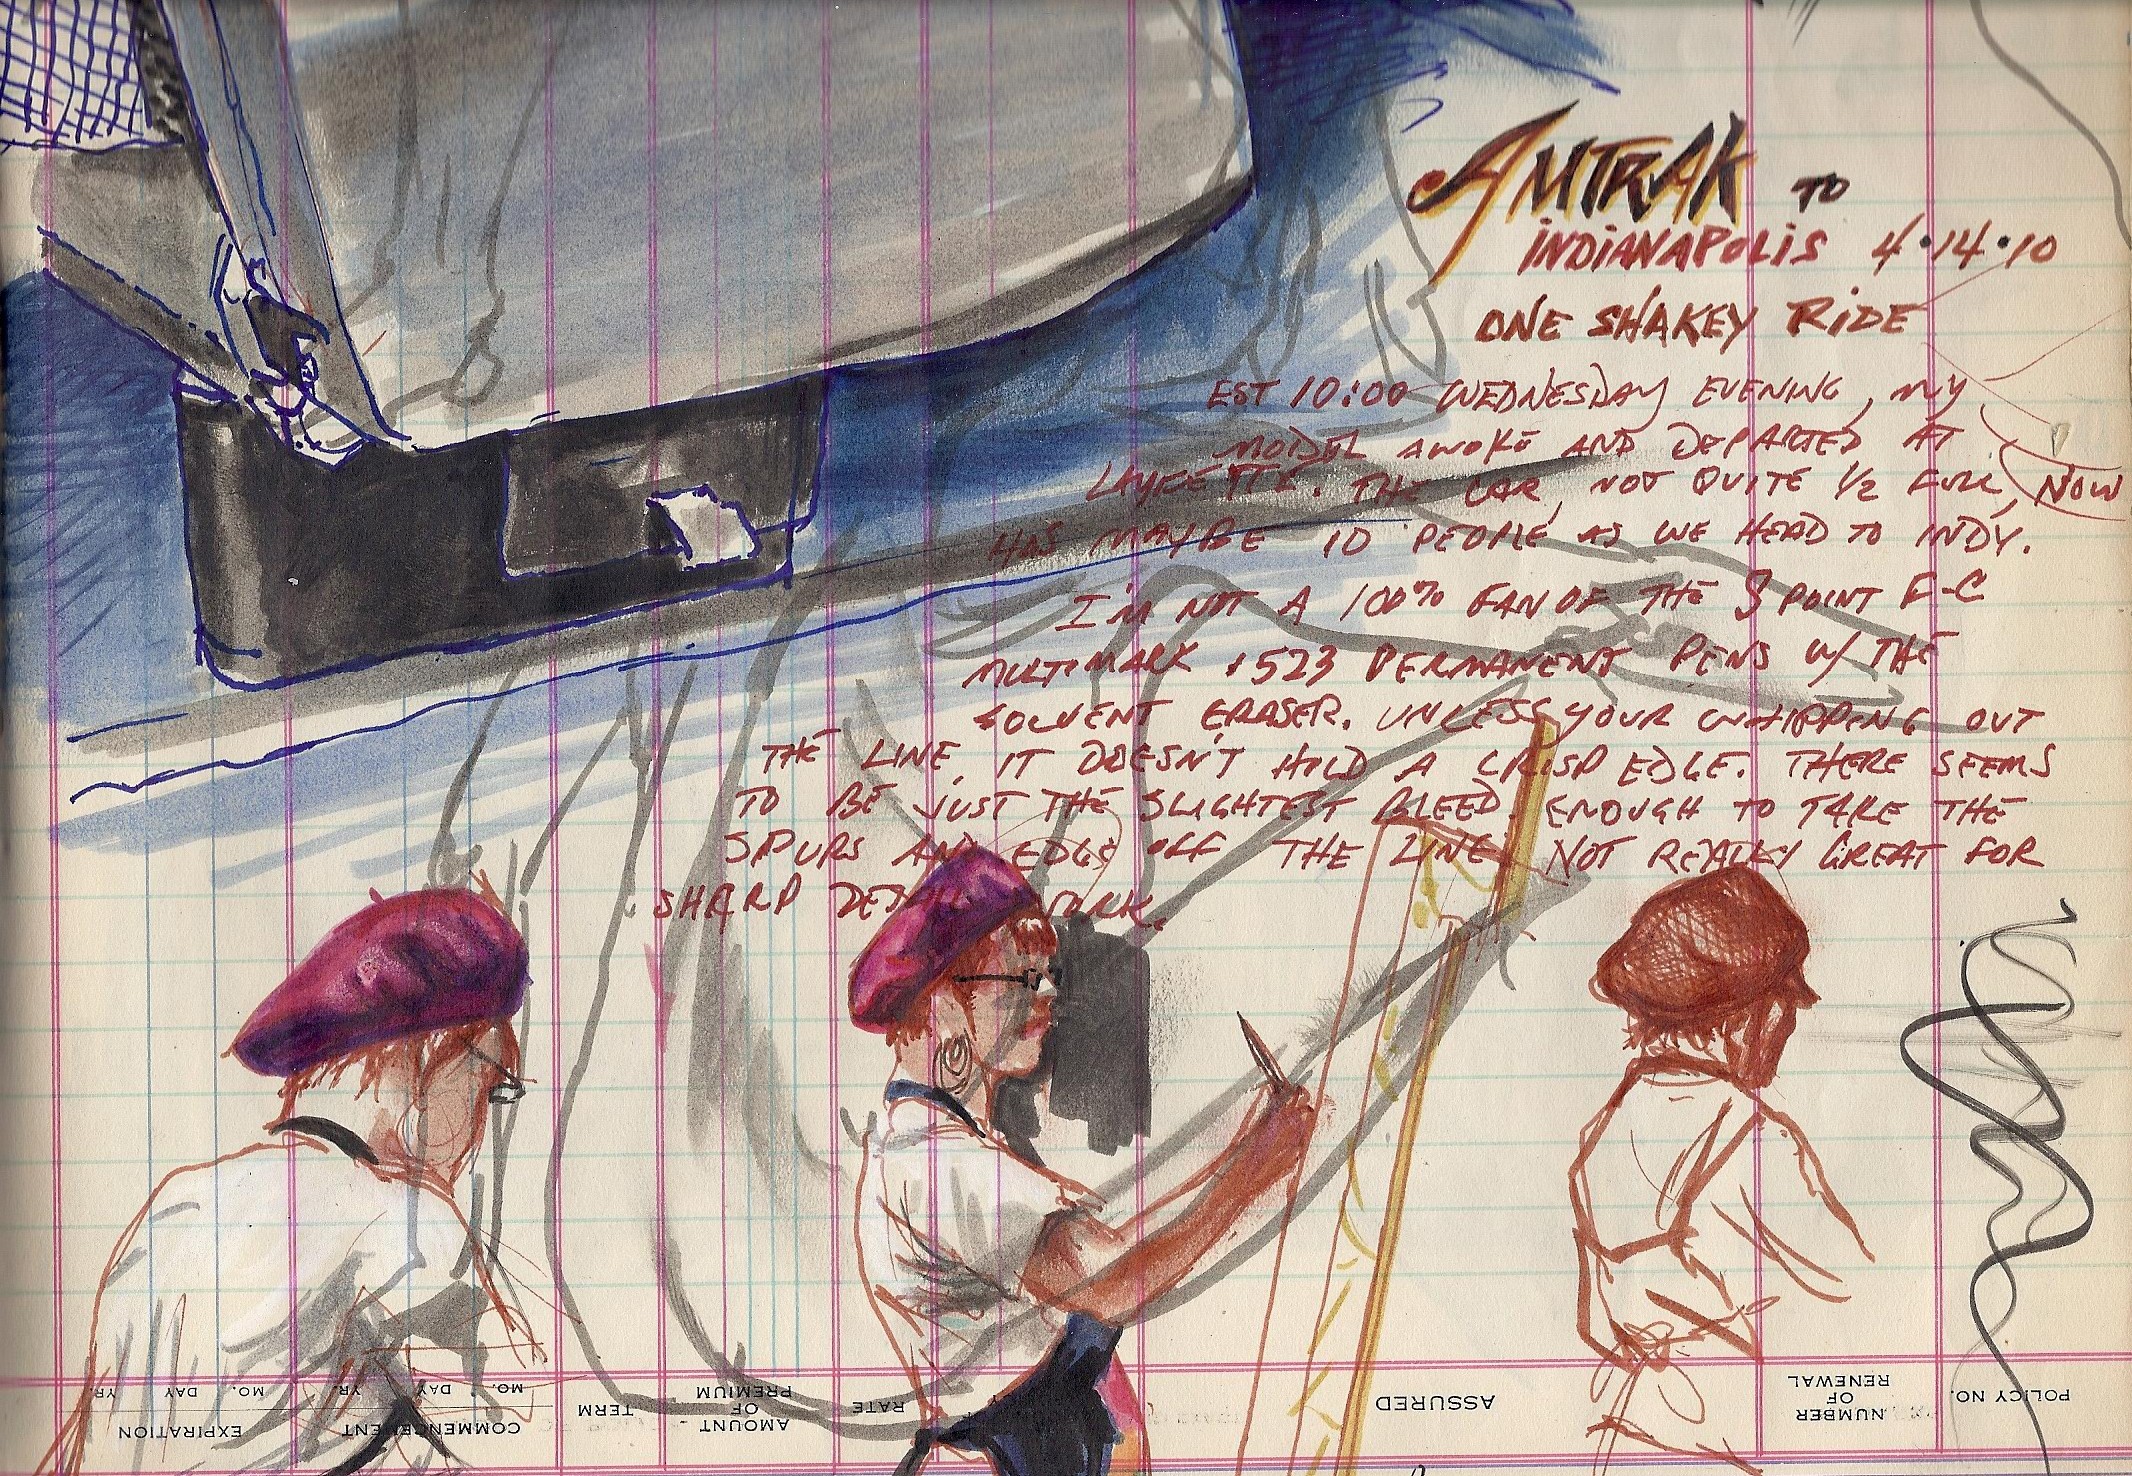 AMTRAK TO
INDIANAPOLIS 4•14•10
ONE SHAKEY RIDE
EST 10:00 WEDNESDAY EVENING, MY
MODEL AWOKE AND DEPARTED AT
LAYFETTE. THE CAR, NOT QUITE 1/2 FULL, NOW
HAS MAYBE 10 PEOPLE AS WE HEAD TO INDY.
I'M NOT A 100% FAN OF THE 3 POINT F-C
MULTIMARK 1523 PERMANENT PENS W/ THE
SOLVENT ERASER. UNLESS YOUR WHIPPING OUT
THE LINE, IT DOESN'T HOLD A CRISP EDGE. THERE SEEMS
TO BE JUST THE SLIGHTEST BLEED. ENOUGH TO TAKE THE
SPURS AND EDGE OFF THE LINE. NOT REALLY GREAT FOR
SHARP
POLICY NO.
NUMBER OF RENEWAL
ASSURED
RATE
AMOUNT OF PREMIUM
TERM
COMMENCEMENT
MO. DAY YR.
EXPIRATION
MO. DAY YR.